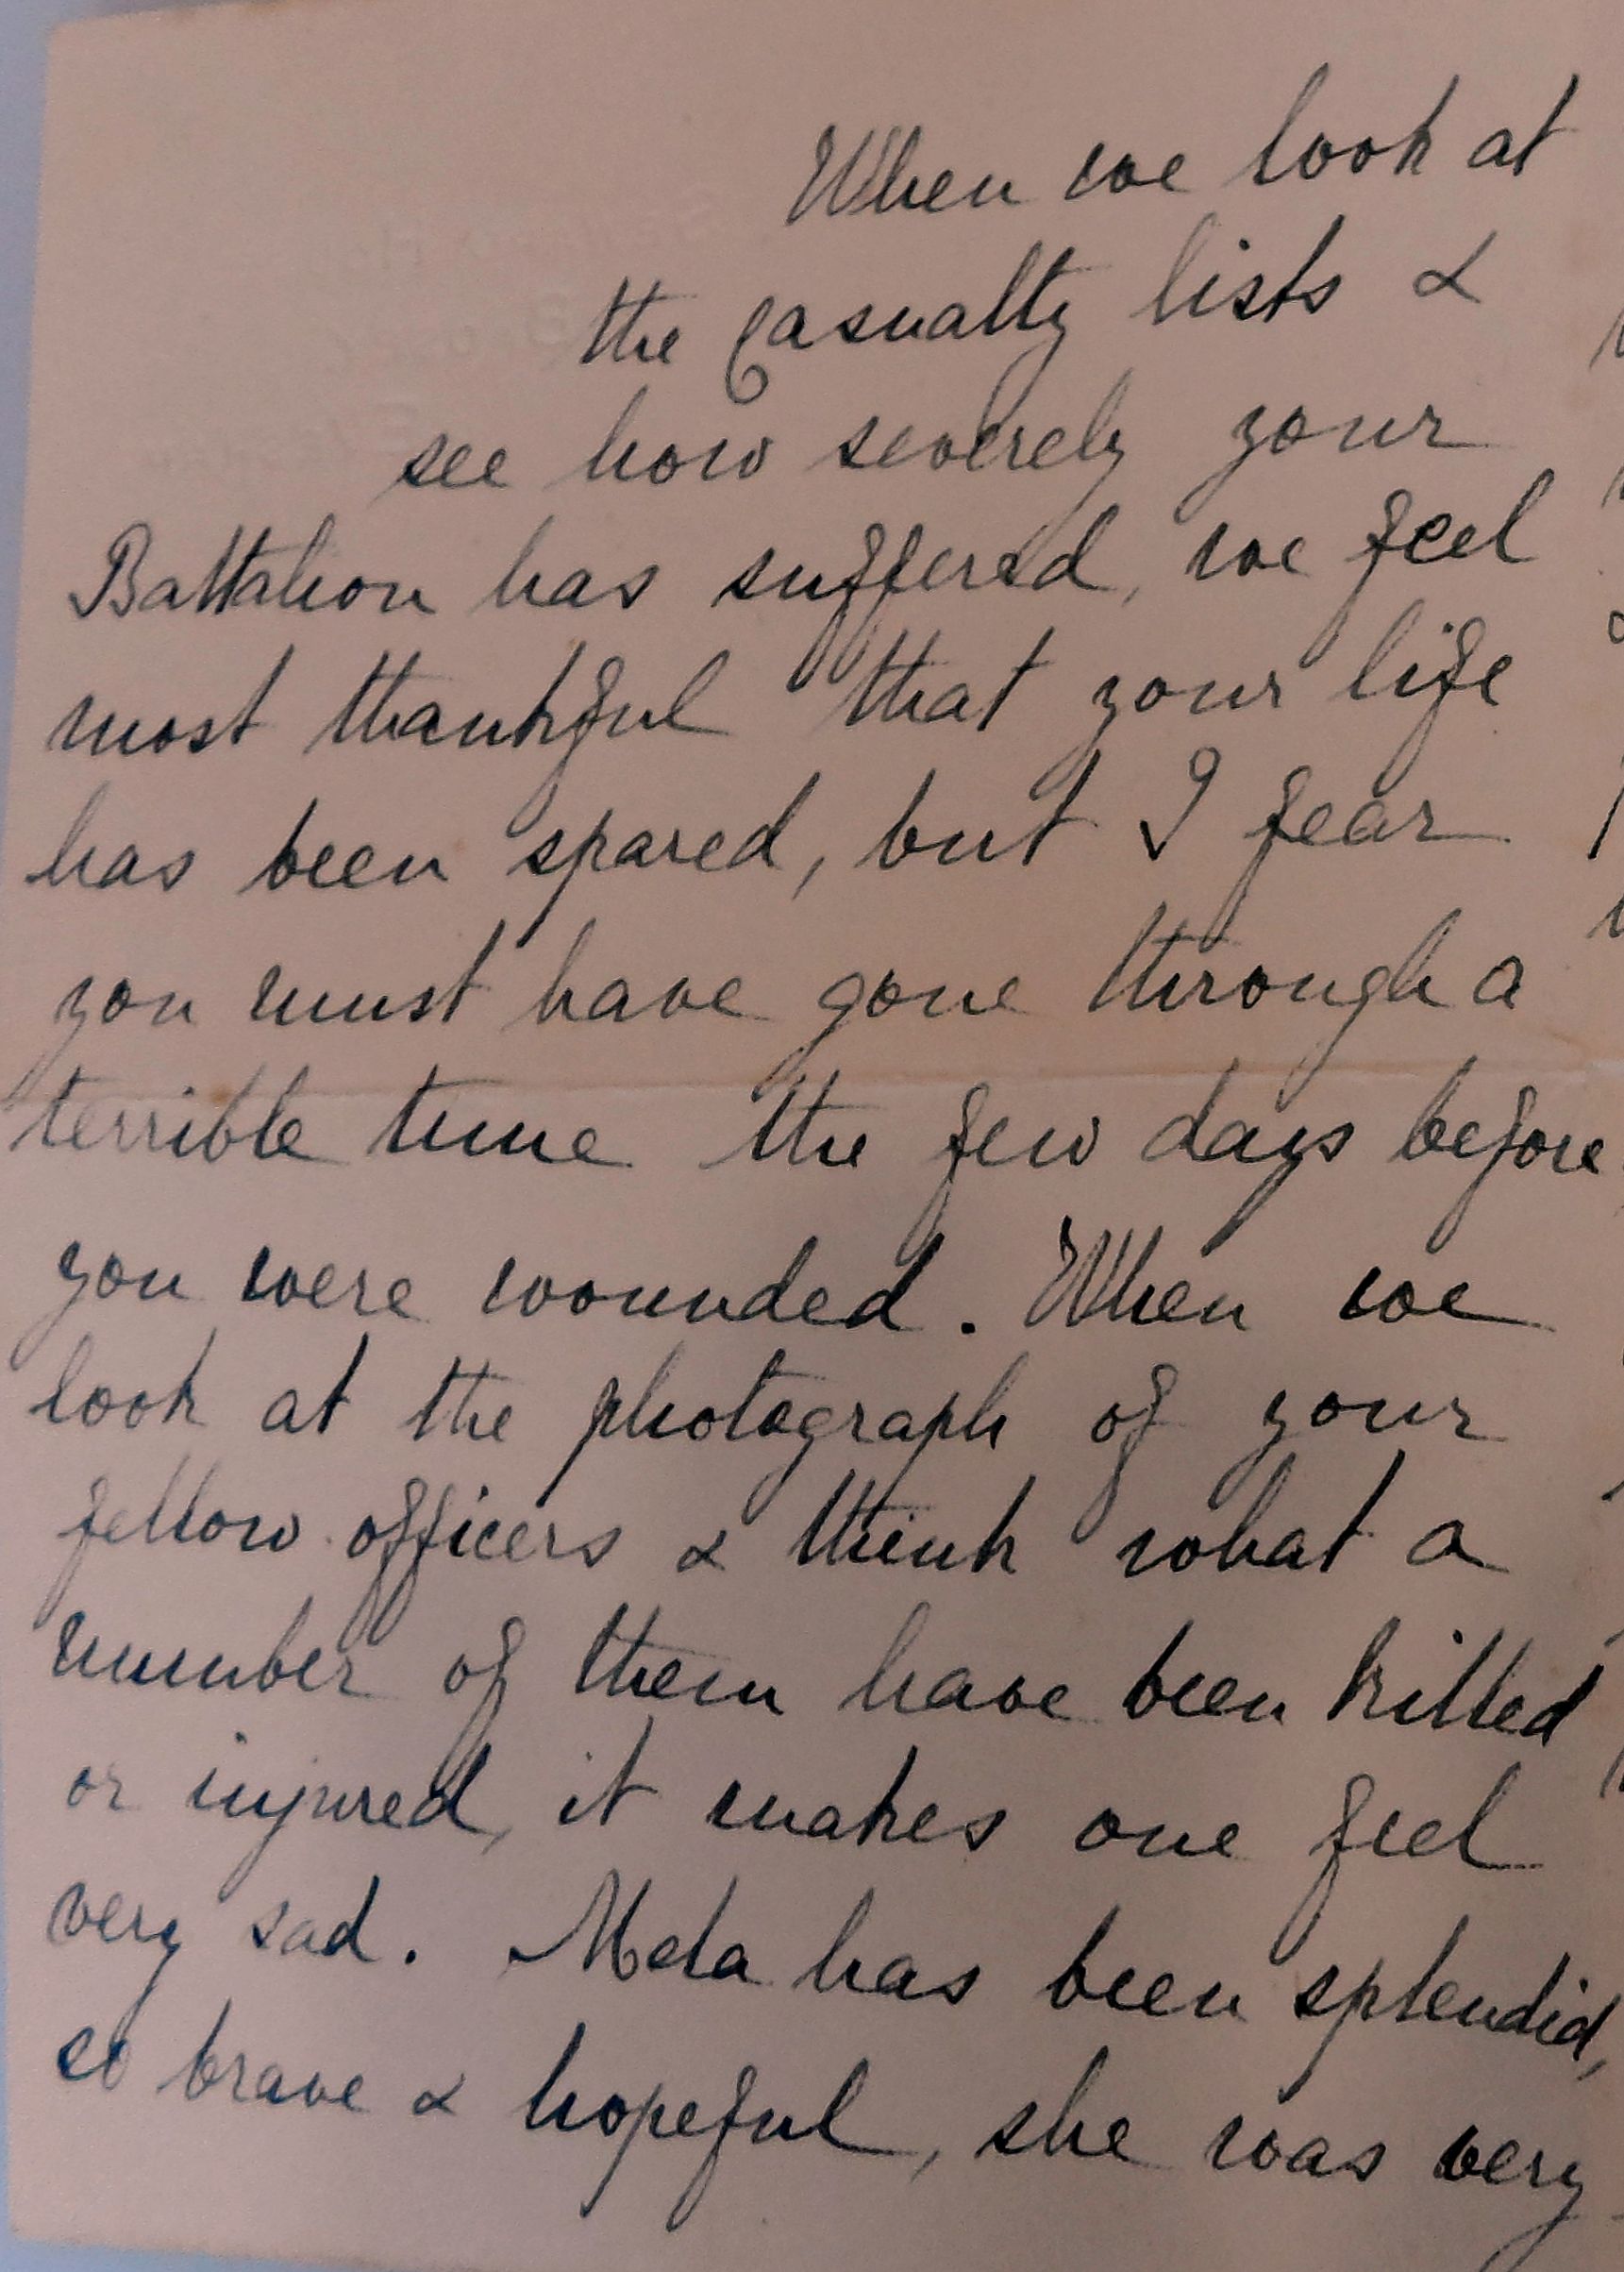 When we look at
the Casualty lists &
see how severely your
Battalion has suffered, we feel
most thankful that your life
has been spared, but I fear
you must have gone through a
terrible time the few days before
you were wounded. When we
look at the photograph of your
fellow officers & think what a
number of them have been killed
or injured, it makes one feel
very sad. Mela has been splendid,
so brave & hopeful, she was very